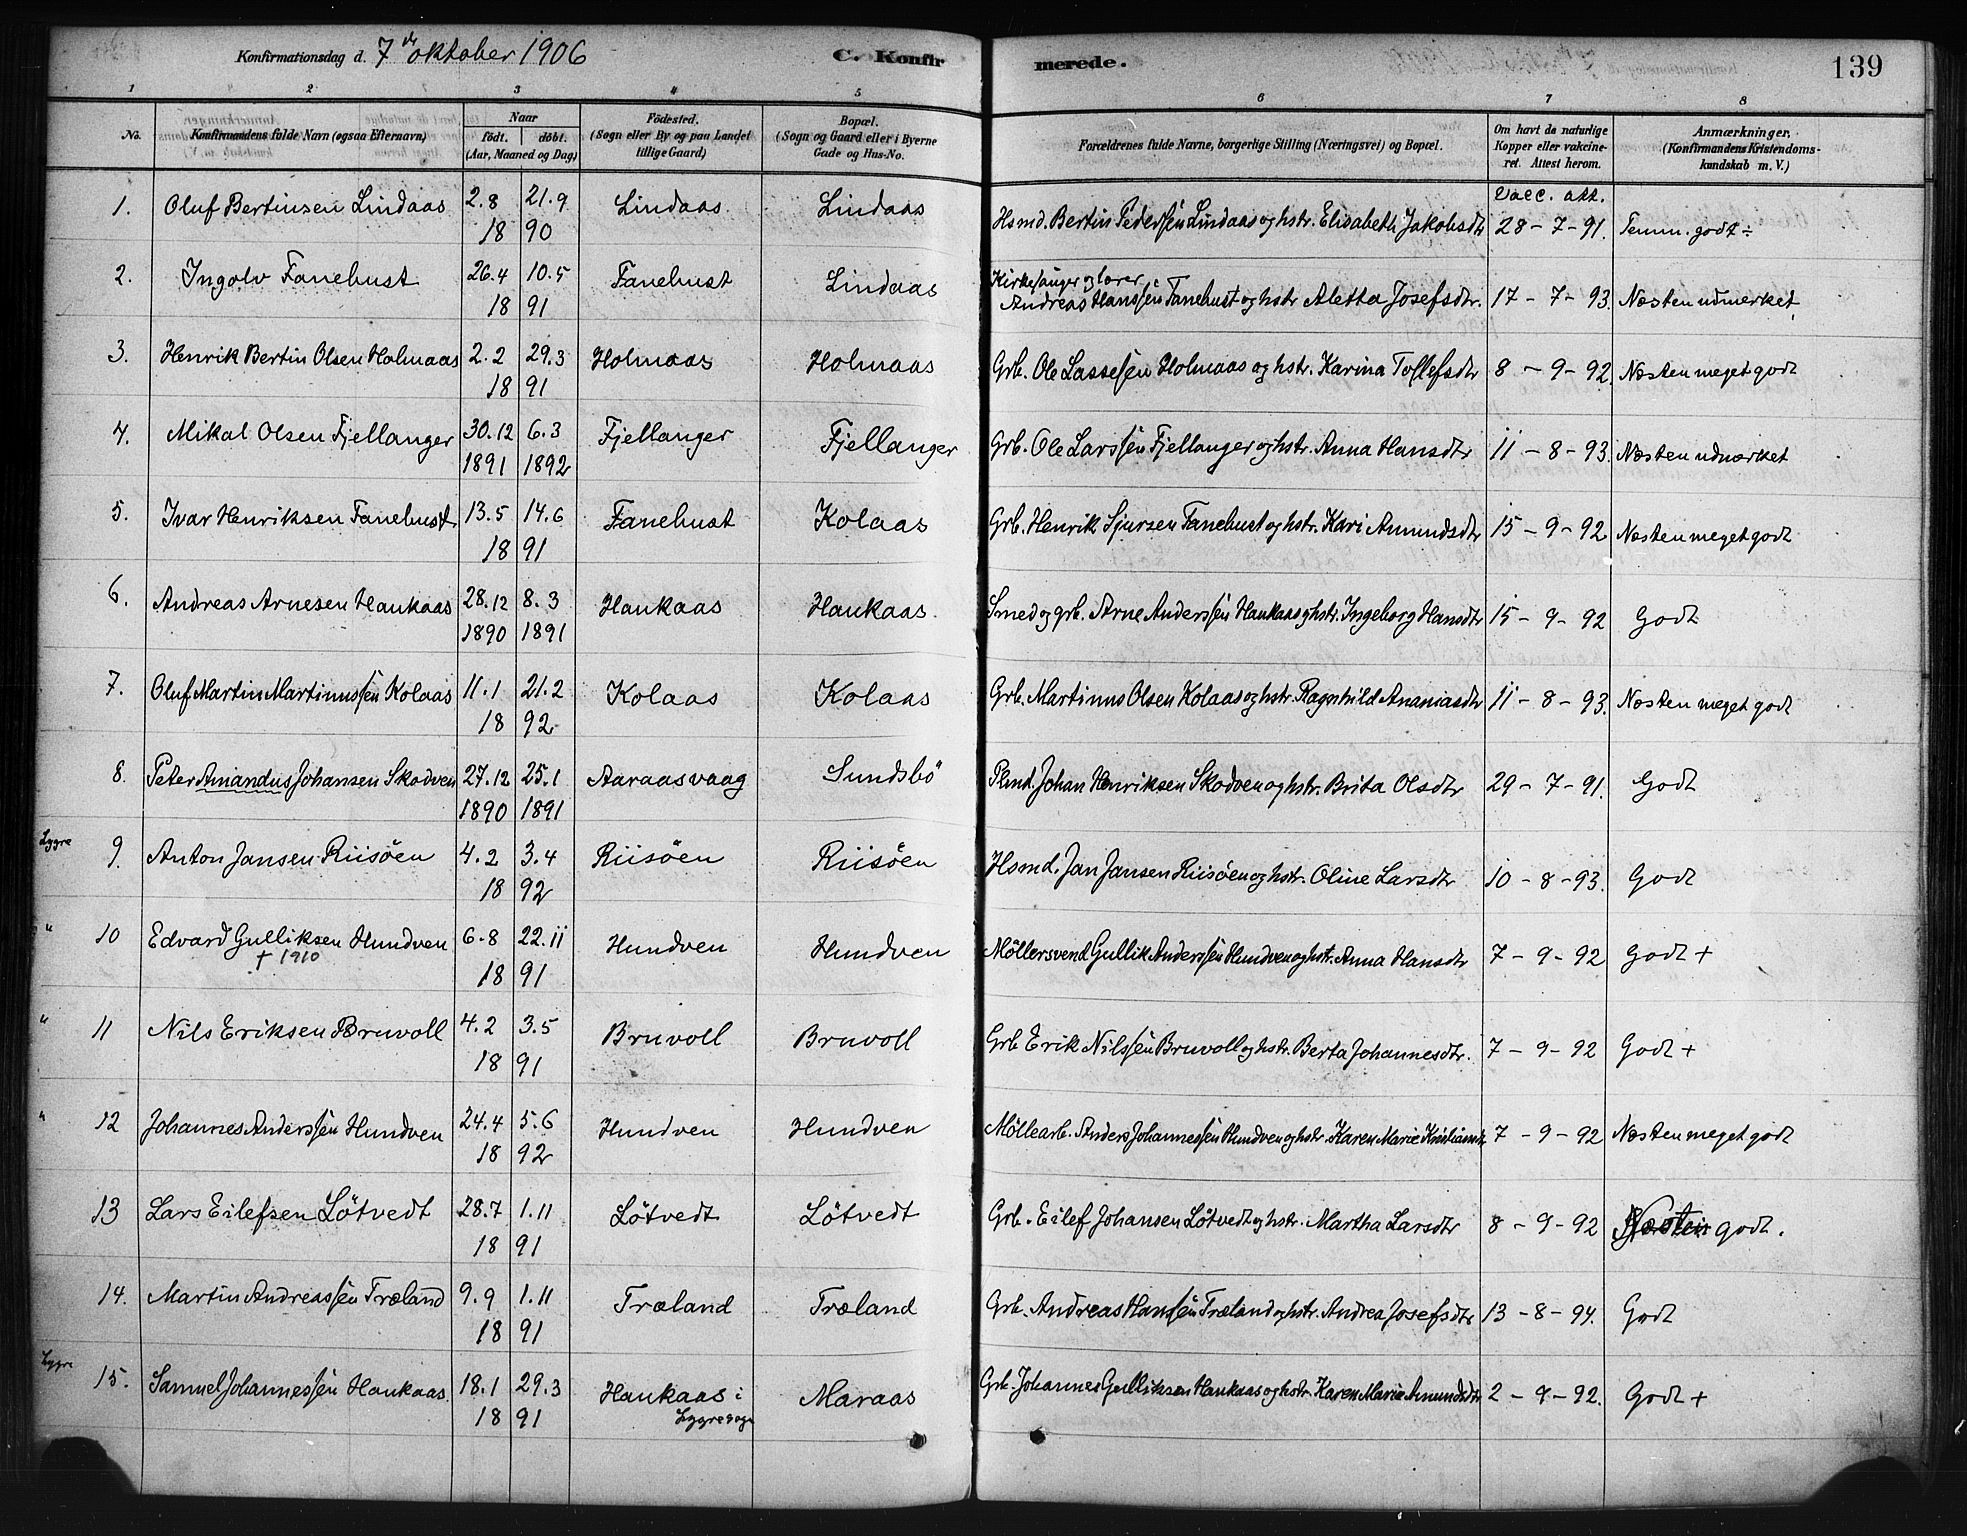 Konfirmationsdag d. 7de oktober 1906 C. Konfirmerede. 139
1 2 3 4 5 6 7 8
No. Konfirmandens fulde Navn (ogsaa Efternavn) Naar födt. döbt. (Aar, Maaned og Dag) Födested. (Sogn eller By og paa Landet tillige Gaard) Bopæl. (Sogn og Gaard eller i Byerne Gade og Hus-No. Forældrenes fulde Navne, borgerlige Stilling (Næringsvei) og Bopæl. Om havt de naturlige Kopper eller vakcineret. Attest herom. Anmærkninger, (Konfirmandens Kristendomskundskab m. V.)
Vacc. att.
1. Oluf Bertinsen Lindaas 2.8 21.9 Lindaas Lindaas Hsmd. Bertin Pederssen Lindaas og hstr. Elisabeth Jakobsdtr 28-7-91. Temm. godt ÷
18 90
2. Ingolv Fanebust 26.4 10.5 Fanebust Lindaas Kirkesanger og lærer
Andreas Hanssen Fanebust og hstr Aletta Josefsdtr. 17-7-93. Næsten udmerket
18 91
3. Henrik Bertin Olsen Holmaas 2.2 29.3 Holmaas Holmaas Grb. Ole Lassesen Holmaas og hstr. Karina Tollefsdtr 8-9-92. Næsten meget godt
18 91
4. Mikal Olsen Fjellanger 30.12 6.3 Fjellanger Fjellanger Grb. Ole Larssen Fjellanger og hstr. Anna Hansdtr 11-8-93. Næsten udmærket
1891 1892
5. Ivar Henriksen Fanebust 13.5 14.6 Fanebust Kolaas Grb. Henrik Sjursen Fanebust og hstr. Kari Amundsdtr 15-9-92 Næsten meget godt
18 91
6. Andreas Arnesen Haukaas 28.12 8.3 Haukaas Haukaas. Smed og grb. Arne Anderssen Haukaas og hstr. Ingeborg Hansdtr 15-9-92 Godt
1890 1891
7. Oluf Martin Martinussen Kolaas 11.1 21.2 Kolaas Kolaas Grb. Martinus Olsen Kolaas og hstr. Ragnhild Ananiasdtr 11-8-93. Næsten meget godt
18 92
8. Peter Amandus Johansen Skodven 27.12 25.1 Aaraasvaag Sundsbö Plmd. Johan Henriksen Skodven og hstr. Brita Olsdtr 29-7-91. Godt
1890 1891
Lygre 9. Anton Jansen Riisöen 4.2 3.4 Riisöen Riisöen Hsmd. Jan Jansen Riisöen og hstr. Oline Larsdtr 10-8-93. Godt
18 92
" 10 Edvard Gulliksen Hundven 6.8 22.11 Hundven Hundven Möllersvend Gullik Anderssen Hundven og hstr. Anna Hansdtr 7-9-92 Godt +
† 1910
18 91
" 11 Nils Eriksen Bruvoll 4.2 3.5 Bruvoll Bruvoll Grb Erik Nilssen Bruvoll og hstr. Berta Johannesdtr. 7-9-92 Godt +
18 91
" 12 Johannes Anderssen Hundven 24.4 5.6 Hundven Hundven Möllearb. Anders Johannessen Hundven og hstr. Karen Marie Kristiansdtr 7-9-92 Næsten meget godt
18 92
13 Lars Eilefsen Lötvedt 28.7 1.11 Lötvedt Lötvedt Grb. Eilef Johansen Lötvedt og hstr. Martha Larsdtr 8-9-92 Næsten godt.
18 91
14. Martin Andreassen Træland 9.9 1.11 Træland Træland Grb. Andreas Hanssen Træland og hstr. Andrea Josefsdtr 13-8-94. Godt
18 91
Lygre 15. Samuel Johannessen Haukaas 18.1 29.3 Haukaas i Maraas Grb. Johannes Gulliksen Haukaas og hstr. Karen Marie Amundsdtr 2-9-92. Godt +
18 91 Lygre sogn